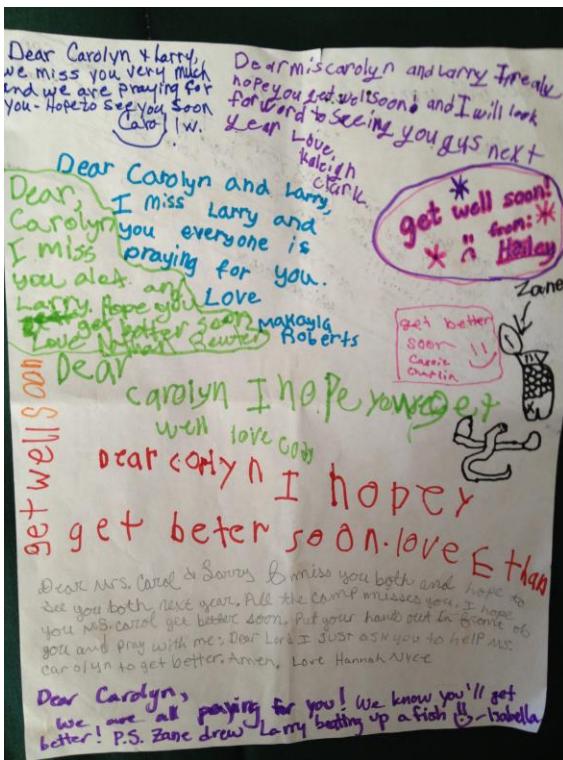 Dear Carolyn & Larry,
we miss you very much
and we are praying for
you - Hope to see you soon
Caro W.
Dear mis carolyn and Larry I realy
hope you get well soon! and I will look
forword to seeing you guys next
year Love,
Kaleigh
Clark.
Dear Carolyn and Larry,
I miss Larry and
you everyone is
praying for you.
Love
Makayla
Roberts
get well soon!
from:
Hailey
Dear,
Carolyn
I miss
you alex. and
Larry. Hope you
get better soon
Love Nathan
Zane
get better
soon
Cassie
Charlin
Dear
carolyn I hope you get
well love Cody
get well soon
Dear corlyn I hopey
get beter soon. love Ethan
Dear Mrs. Carol & Larry I miss you both and hope to
see you both next year. All the camp misses you. I hope
you Mrs. Carol get better soon. Put your hands out in fronte of
you and pray with me: Dear Lord I just ask you to help Ms.
carolyn to get better. Amen. Love Hannah Nyce
Dear Carolyn,
we are all paying for you! We know you'll get
better! P.S. Zane drew Larry beating up a fish - Isabella